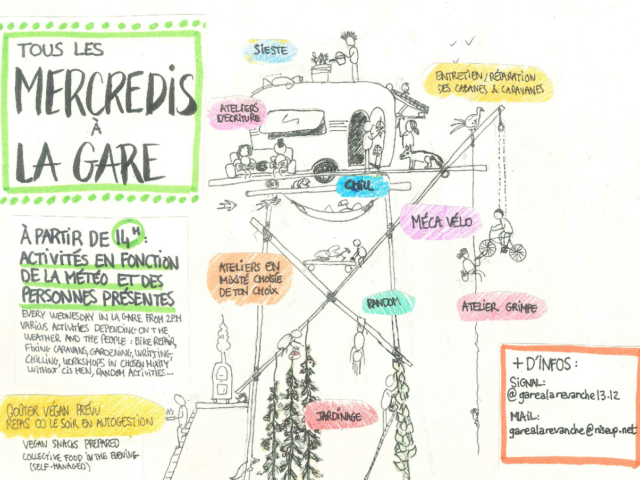 TOUS LES
MERCREDIS
À
LA GARE
À PARTIR DE 14H :
ACTIVITÉS EN FONCTION
DE LA MÉTÉO ET DES
PERSONNES PRÉSENTES
EVERY WEDNESDAY IN LA GARE FROM 2PM
VARIOUS ACTIVITIES DEPENDING ON THE
WEATHER AND THE PEOPLE : BIKE REPAIR,
FIXING CARAVANS, GARDENING, WRITTING,
CHILLING, WORKSHOPS IN CHOSEN MIXITY
WITHOUT CIS MEN, RANDOM ACTIVITIES...
GOÛTER VÉGAN PRÉVU
REPAS CO LE SOIR EN AUTOGESTION
VEGAN SNACKS PREPARED
COLLECTIVE FOOD IN THE EVENING
(SELF-MANAGED)
SIESTE
ATELIERS
D'ECRITURE
ENTRETIEN/RÉPARATION
DES CABANES & CARAVANES
CHILL
MÉCA VÉLO
ATELIERS EN
MIXITÉ CHOISIE
DE TON CHOIX
RANDOM
ATELIER GRIMPE
JARDINAGE
+ D'INFOS :
SIGNAL:
@garealarevanche13.12
MAIL:
garealarevanche@riseup.net